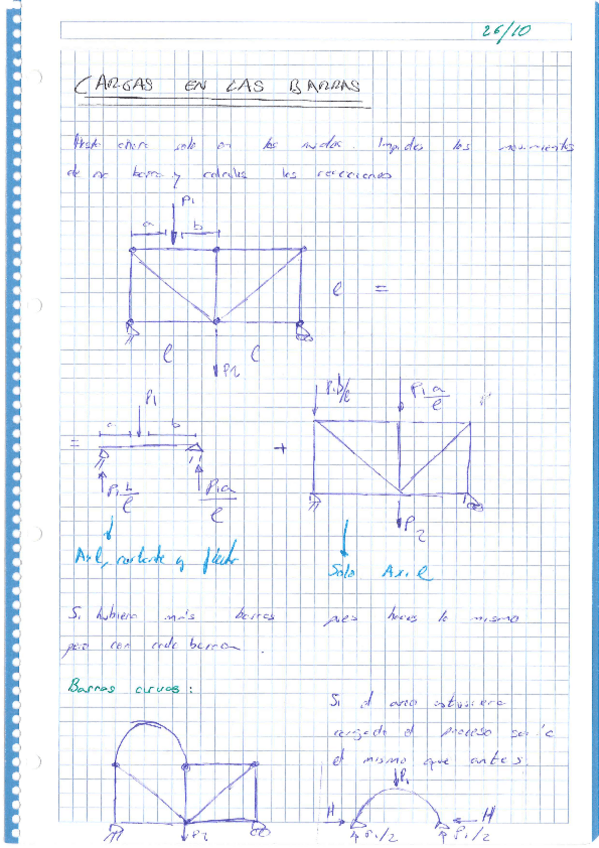 26/10
CARGAS EN LAS BARRAS
Hasta ahora solo en los nudos. Impides los movimientos
de una barra y calculas las reacciones
P1
a b
l =
l l
P2
P1
a b
=
P1 b/l
P1 a/l
+
P1 b/l
P1 a/l
P2
Axil, cortante y flector
Solo Axil
Si hubiera más barras pues haces lo mismo
pero con cada barra.
Barras curvas:
Si el arco estuviera
cargado el proceso sería
el mismo que antes.
P2
P1
H H
P1/2 P1/2